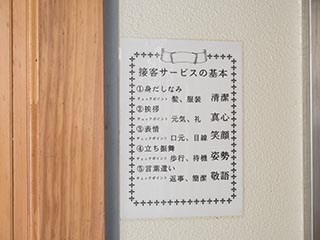 接客サービスの基本
①身だしなみ
チェックポイント 髪、服装 清潔
②挨拶
チェックポイント 元気、礼 真心
③表情
チェックポイント 口元、目線 笑顔
④立ち振舞
チェックポイント 歩行、待機 姿勢
⑤言葉遣い
チェックポイント 返事、簡潔 敬語